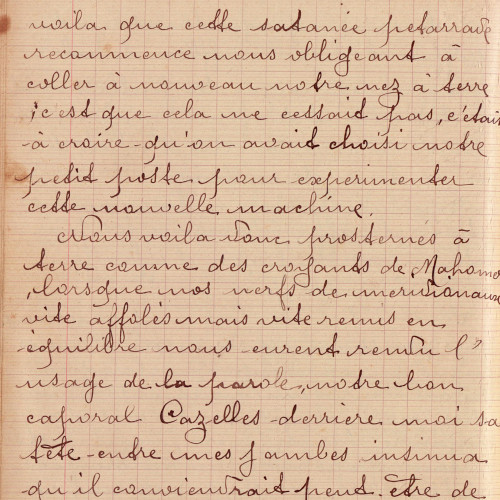 voila que cette satanée petarrade
recommence nous obligeant à
coller à nouveau notre nez à terre
, c'est que cela ne cessait pas, c'était
à croire qu'on avait choisi notre
petit poste pour experimenter
cette nouvelle machine.
Nous voila donc prosternés à
terre comme des croyants de Mahomet
, lorsque nos nerfs de meridionaux
vite affolés mais vite remis en
équilibre nous eurent rendu l'
usage de la parole, notre bon
caporal Cazelles derrière moi sa
tête entre mes jambes insinua
qu'il conviendrait peut-être de